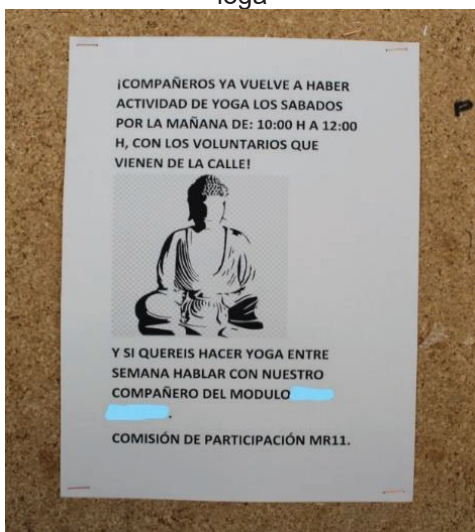 ioga
¡COMPAÑEROS YA VUELVE A HABER
ACTIVIDAD DE YOGA LOS SABADOS
POR LA MAÑANA DE: 10:00 H A 12:00
H, CON LOS VOLUNTARIOS QUE
VIENEN DE LA CALLE!
Y SI QUEREIS HACER YOGA ENTRE
SEMANA HABLAR CON NUESTRO
COMPAÑERO DEL MODULO
.
COMISIÓN DE PARTICIPACIÓN MR11.
P